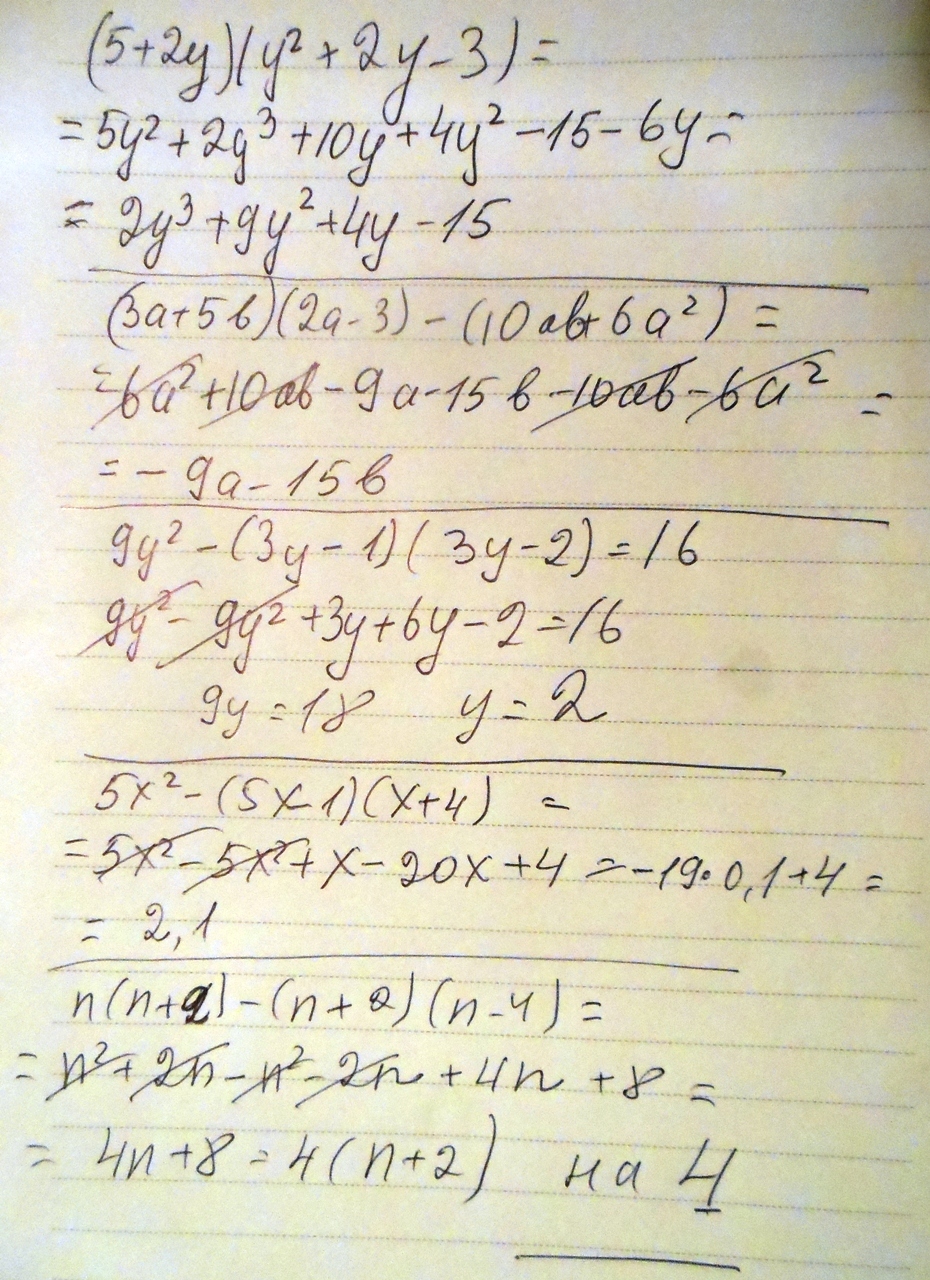 (5+2y)(y²+2y-3)=
=5y²+2y³+10y+4y²-15-6y=
= 2y³+9y²+4y-15
(3a+5b)(2a-3)-(10ab+6a²)=
=6a²+10ab-9a-15b-10ab-6a² =
=-9a-15b
9y²-(3y-1)(3y-2)=16
9y²-9y²+3y+6y-2=16
9y=18 y=2
5x²-(5x-1)(x+4) =
=5x²-5x²+x-20x+4=-19·0,1+4=
= 2,1
n(n+2)-(n+2)(n-4)=
=n²+2n-n²-2n+4n+8=
= 4n+8=4(n+2) на 4